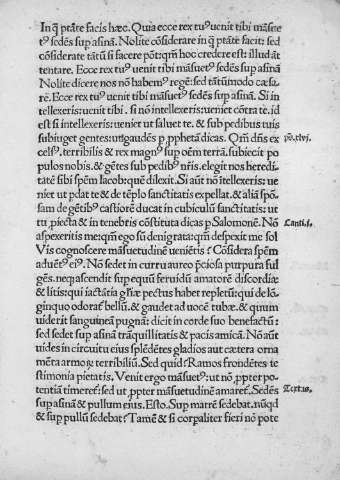 In q̃ ptãte facis hæc. Quia ecce rex tuꝰ uenit tibi mãsue
tꝰ sedẽs sup asinã. Nolite cõsiderare in q̃ ptãte facit: sed
cõsiderate tãtũ si facere põt: qm̃ hoc credere est: illud at
tentare. Ecce rex tuꝰ uenit tibi mãsuetꝰ sedẽs sup asinã
Nolite dicere nos nõ habemꝰ regẽ: sed tãtũmodo cæsa
rẽ. Ecce rex tuꝰ uenit tibi mãsuetꝰ sedẽs sup asinã. Si in
tellexeris: uenit tibi. si nõ intellexeris: ueniet cõtra te. id
est si intellexeris: ueniet ut saluet te. & sub pedibus tuis
subiuget gentes: ut gaudẽs p pphetã dicas. Qm̃ dñs ex
celsꝰ, terribilis & rex magnꝰ sup oẽm terrã. subiecit po
pulos nobis. & gẽtes sub pedibꝰ nr̃is. elegit nos heredi
tatẽ sibi spẽm Iacobi quẽ dilexit. Si aũt nõ ĩtellexeris: ue
niet ut pdat te & de tẽplo sanctitatis expellat. & aliã spõ
sam de gẽtibꝰ castiorẽ ducat in cubiculũ sanctitatis: ut
tu piecta & in tenebris cõstituta dicas p Salomonẽ. Nõ
aspexeritis me: qm̃ ego sũ denigrata: qm̃ despexit me sol
Vis cognoscere mãsuetudinẽ ueniẽtis? Cõsidera spẽm
aduẽtꝰ eiꝰ. Nõ sedet in curru aureo p̃ciosa purpura ful
gẽs. neq; ascendit sup equũ feruidũ amatorẽ discordiæ
& litis: qui iactãtia gl̃iæ pectus habet repletũ: qui de lõ
ginquo odorat bellũ. & gaudet ad uocẽ tubæ. & quum
uiderit sanguineã pugnã: dicit in corde suo benefactũ:
sed sedet sup asinã trãquillitatis & pacis amicã. Nõ aũt
uides in circuitu eius splẽdẽtes gladios aut cætera orna
mẽta armoꝝ terribiliũ. Sed quid? Ramos frondẽtes te
stimonia pietatis. Venit ergo mãsuetꝰ: ut nõ ꝓpter po-
potentiã timeret̃: sed ut ꝓpter mãsuetudinẽ amaret̃. Sedẽs
sup asinã & pullum eius. Esto. Sup matrẽ sedebat. nũqd
& sup pullũ sedebat? Tamẽ & si corpaliter fieri nõ pote
ps̃. xlvi.
Canti. i.
Textus.